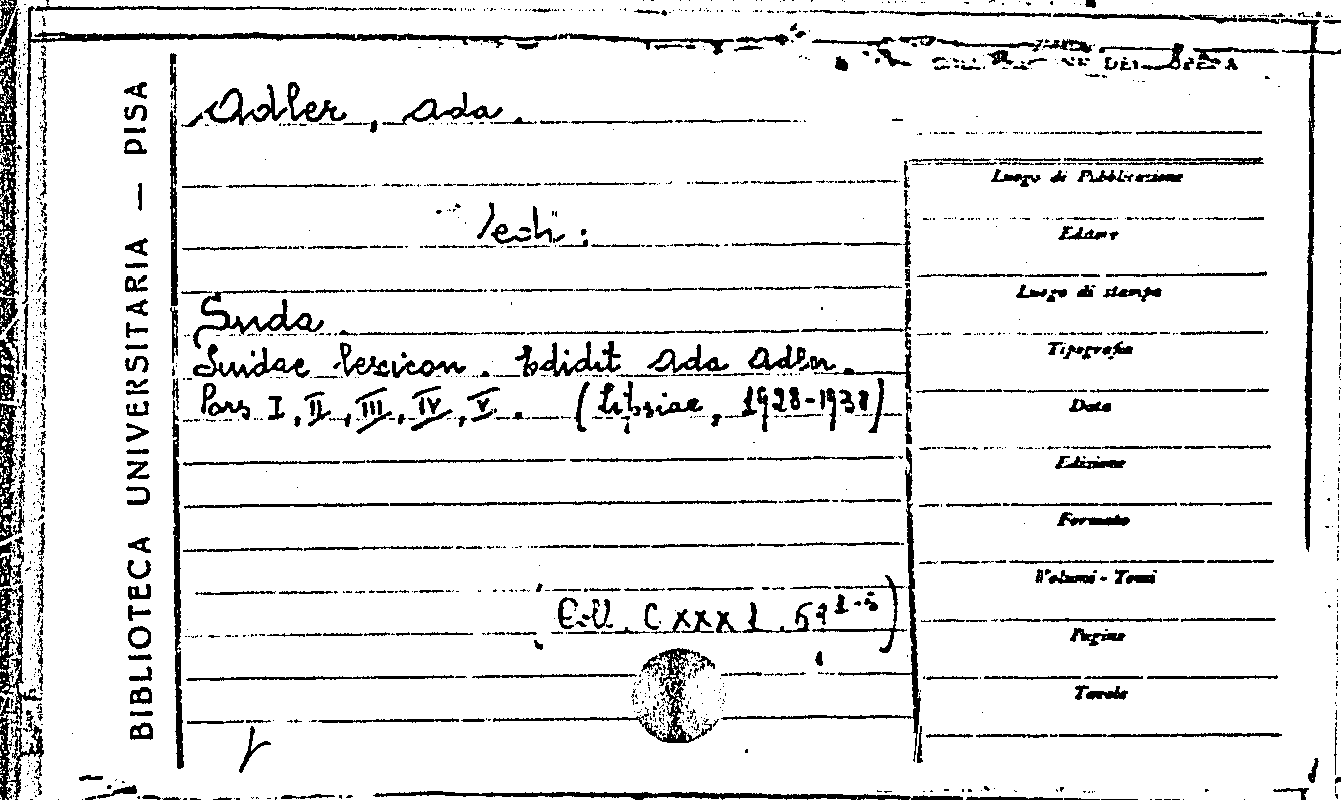 BIBLIOTECA UNIVERSITARIA — PISA
DELL'OPERA
Adler, Ada.
Vedi:
Suda.
Suidae lexicon. Edidit Ada Adler.
Pars I, II, III, IV, V. (Lipsiae, 1928-1938)
(Coll. C XXX 1. 59 1-5)
Luogo di Pubblicazione
Editore
Luogo di stampa
Tipografia
Data
Edizione
Formato
Volumi - Tomi
Pagine
Tavole